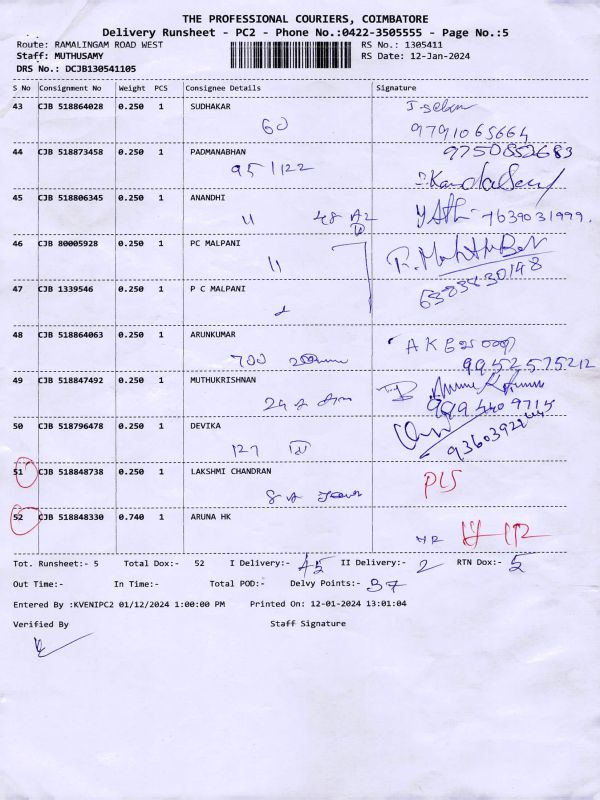 THE PROFESSIONAL COURIERS, COIMBATORE
Delivery Runsheet - PC2 - Phone No.:0422-3505555 - Page No.:5
Route: RAMALINGAM ROAD WEST RS No.: 1305411
Staff: MUTHUSAMY RS Date: 12-Jan-2024
DRS No.: DCJB130541105
S No Consignment No Weight PCS Consignee Details Signature
43 CJB 518864028 0.250 1 SUDHAKAR
60 9791065664
44 CJB 518873458 0.250 1 PADMANABHAN 9750852683
95/122
45 CJB 518806345 0.250 1 ANANDHI
11 48 A2 7639031999.
46 CJB 80005928 0.250 1 PC MALPANI
11
47 CJB 1339546 0.250 1 P C MALPANI 6383430148
48 CJB 518864063 0.250 1 ARUNKUMAR
700 9952575212
49 CJB 518847492 0.250 1 MUTHUKRISHNAN
989 440 9715
50 CJB 518796478 0.250 1 DEVIKA
127
51 CJB 518848738 0.250 1 LAKSHMI CHANDRAN
8 PLS
52 CJB 518848330 0.740 1 ARUNA HK
Tot. Runsheet:- 5 Total Dox:- 52 I Delivery:- 45 II Delivery:- 2 RTN Dox:- 5
Out Time:- In Time:- Total POD:- Delvy Points:- 37
Entered By :KVENIPC2 01/12/2024 1:00:00 PM Printed On: 12-01-2024 13:01:04
Verified By Staff Signature